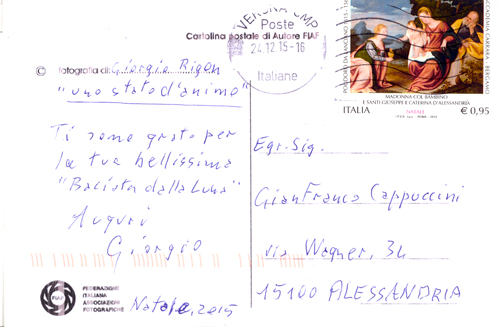 Cartolina postale di Autore FIAF
VERONA CMP
Poste
24.12.15-16
Italiane
ACCADEMIA CARRARA - BERGAMO
MADONNA COL BAMBINO
E SANTI GIUSEPPE E CATERINA D'ALESSANDRIA
NATALE
ITALIA € 0,95
© fotografia di: Giorgio Rigon
"uno stato d'animo"
Ti sono grato per
la tua bellissima
"Baciata dalla Luna"
Auguri
Giorgio
Natale, 2015
Egr. Sig.
GianFranco Cappuccini
via Wagner, 34
15100 ALESSANDRIA
FIAF
FEDERAZIONE
ITALIANA
ASSOCIAZIONI
FOTOGRAFICHE